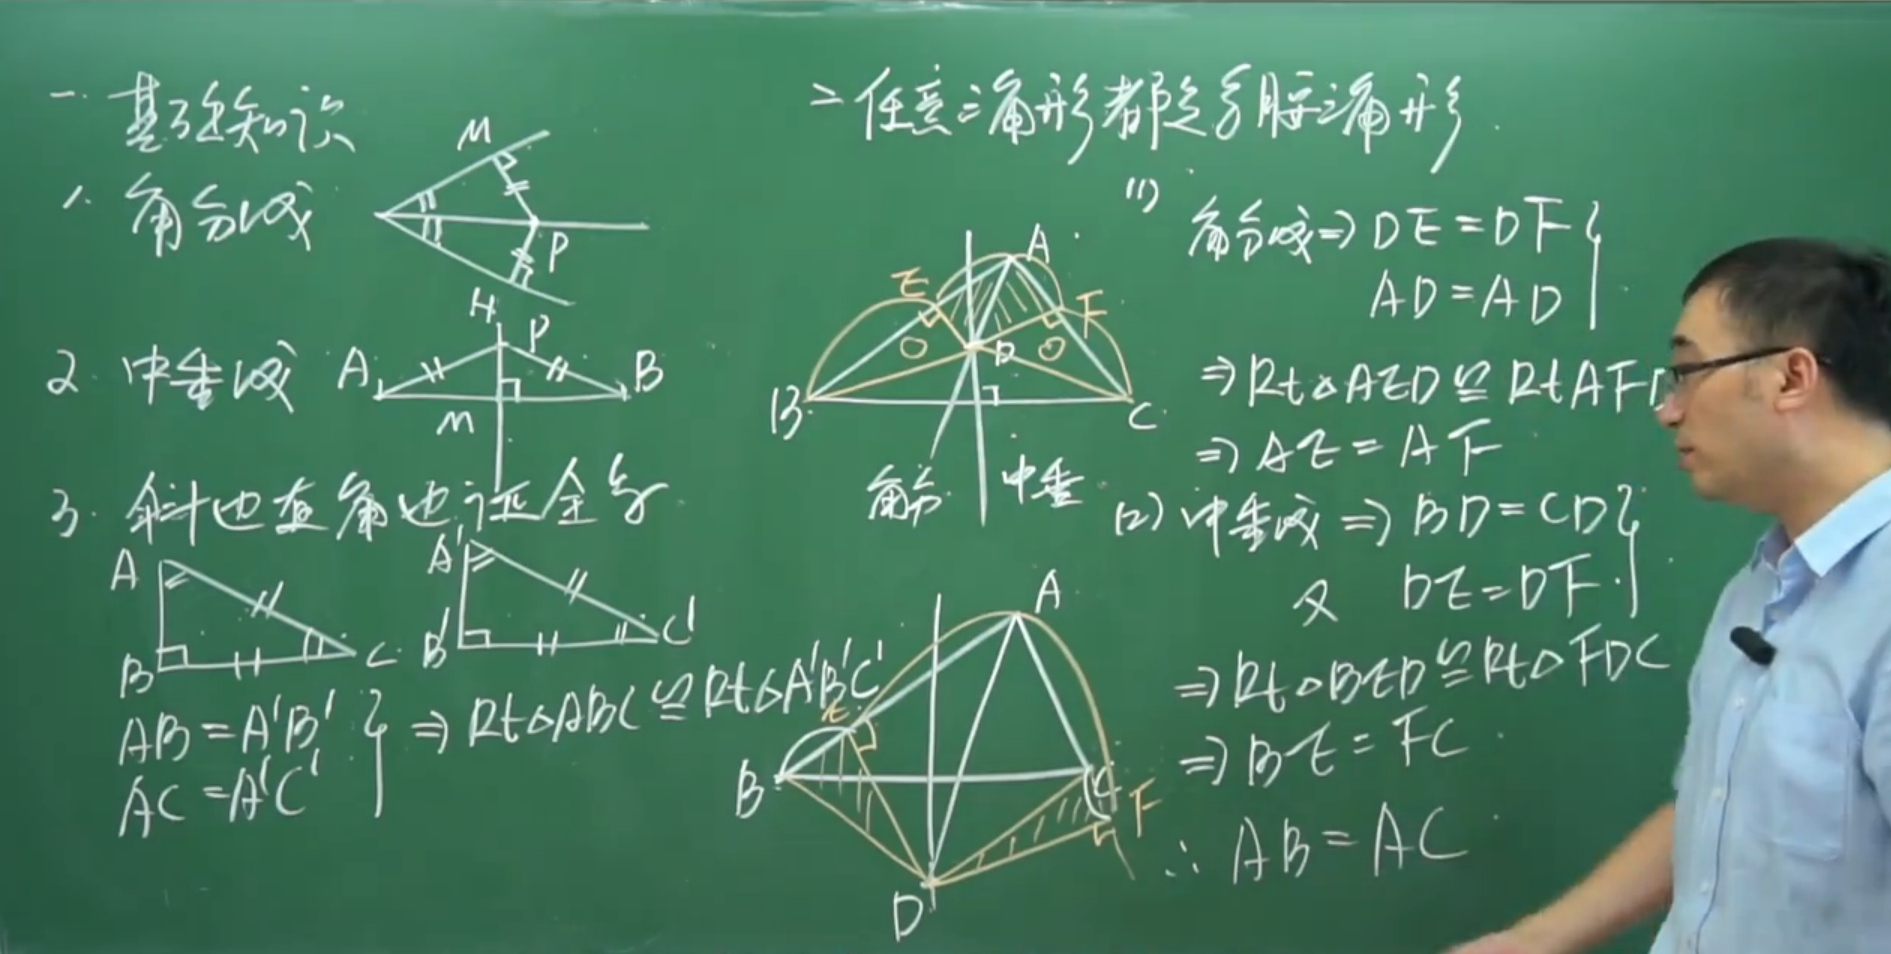 一. 基础知识
1. 角分线
M
P
H
2. 中垂线
A
P
B
M
3. 斜边直角边证全等
A
B
C
A'
B'
C'
AB=A'B'
AC=A'C'
} ⇒ Rt△ABC≌Rt△A'B'C'
二 任意三角形都是等腰三角形.
A
E
F
D
B
C
角分
中垂
A
E
B
C
F
D
(1)
角分线⇒DE=DF
AD=AD }
⇒Rt△AED≌RtAFD
⇒AE=AF
(2) 中垂线⇒BD=CD
又 DE=DF. }
⇒Rt△BED≌Rt△FDC
⇒BE=FC
∴AB=AC